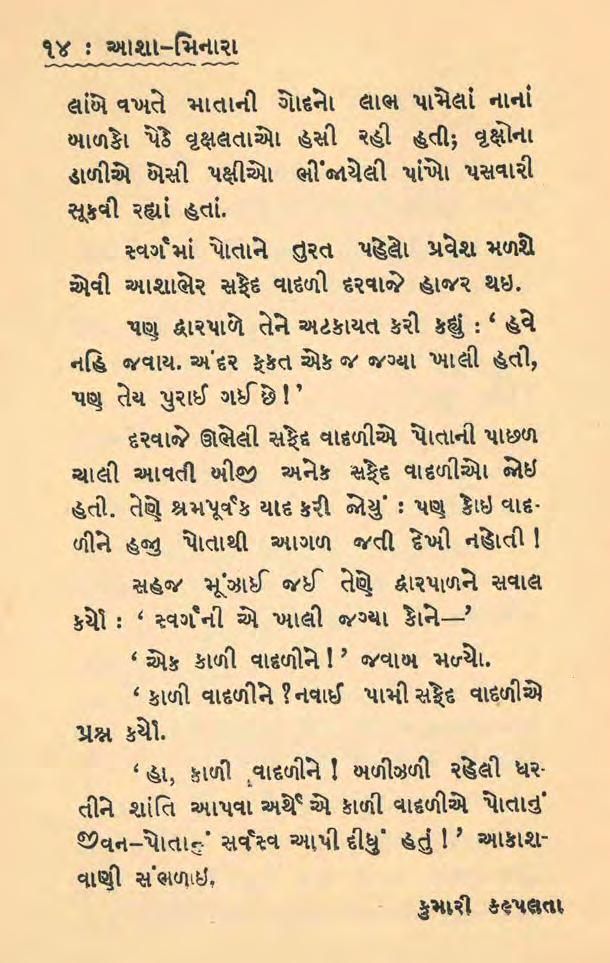 ૧૪ : આશા–મિનારા
લાંબે વખતે માતાની ગોદનો લાભ પામેલાં નાનાં
બાળકો પેઠે વૃક્ષલતાઓ હસી રહી હતી; વૃક્ષોના
ડાળીએ બેસી પક્ષીઓ ભીંજાયેલી પાંખો પસવારી
સૂકવી રહ્યાં હતાં.
સ્વર્ગમાં પોતાને તુરત પહેલો પ્રવેશ મળશે
એવી આશાભેર સફેદ વાદળી દરવાજે હાજર થઇ.
પણ દ્વારપાળે તેને અટકાયત કરી કહ્યું : ‘ હવે
નહિ જવાય. અંદર ફકત એક જ જગ્યા ખાલી હતી,
પણ તેય પુરાઈ ગઈ છે ! ’
દરવાજે ઊભેલી સફેદ વાદળીએ પોતાની પાછળ
ચાલી આવતી બીજી અનેક સફેદ વાદળીઓ જોઇ
હતી. તેણે શ્રમપૂર્વક યાદ કરી જોયું : પણ કોઇ વાદ-
ળીને હજુ પોતાથી આગળ જતી દેખી નહોતી !
સહજ મૂંઝાઈ જઈ તેણે દ્વારપાળને સવાલ
કર્યો : ‘ સ્વર્ગની એ ખાલી જગ્યા કોને—’
‘ એક કાળી વાદળીને ! ’ જવાબ મળ્યો.
‘ કાળી વાદળીને ? નવાઈ પામી સફેદ વાદળીએ
પ્રશ્ન કર્યો.
‘ હા, કાળી વાદળીને ! બળીઝળી રહેલી ધર-
તીને શાંતિ આપવા અર્થે એ કાળી વાદળીએ પોતાનું
જીવન–પોતાનું સર્વસ્વ આપી દીધું હતું ! ’ આકાશ-
વાણી સંભળાઇ.
કુમારી કલ્પલતા